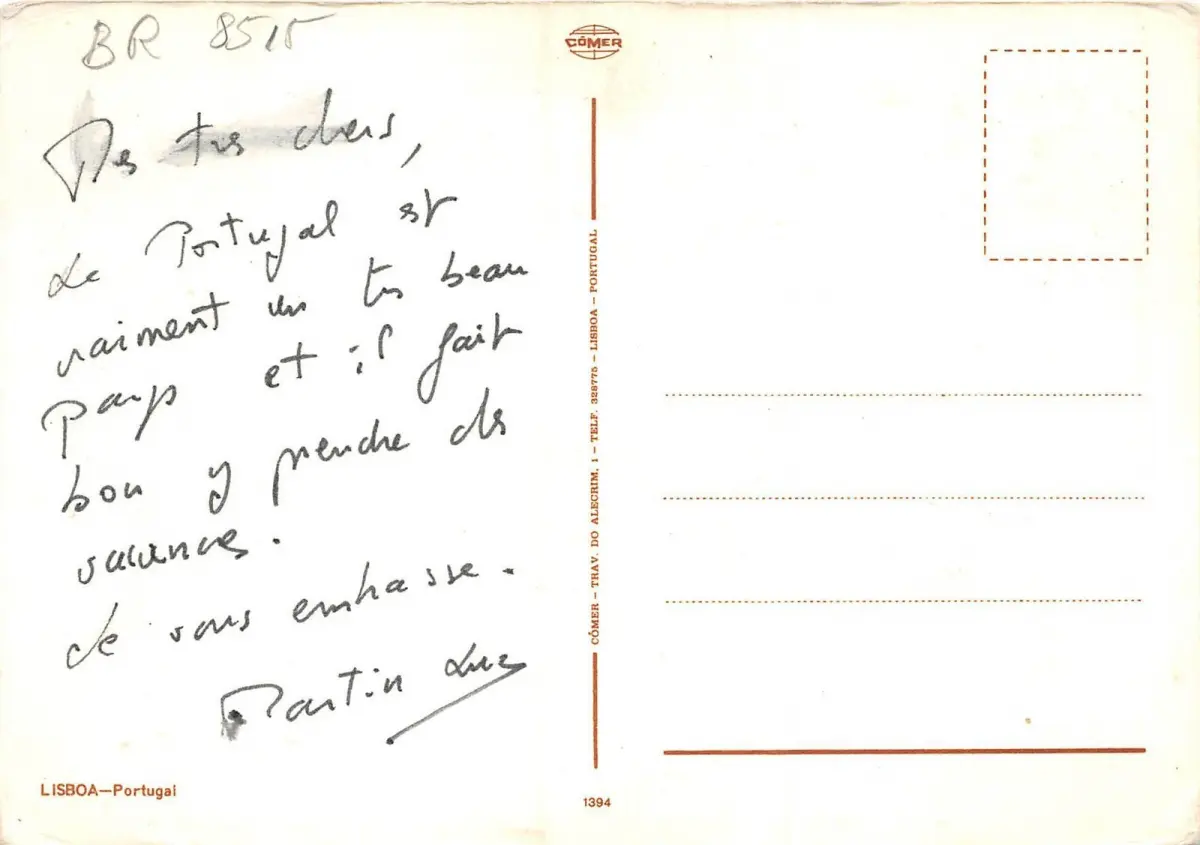 BR 8515
CÓMER
Mes très chers,
Le Portugal est
vraiment un très beau
pays et il fait
bon y prendre des
vacances.
Je vous embrasse.
Martin Luc
CÓMER – TRAV. DO ALECRIM, 1 – TELF. 328775 – LISBOA – PORTUGAL
LISBOA—Portugal
1394